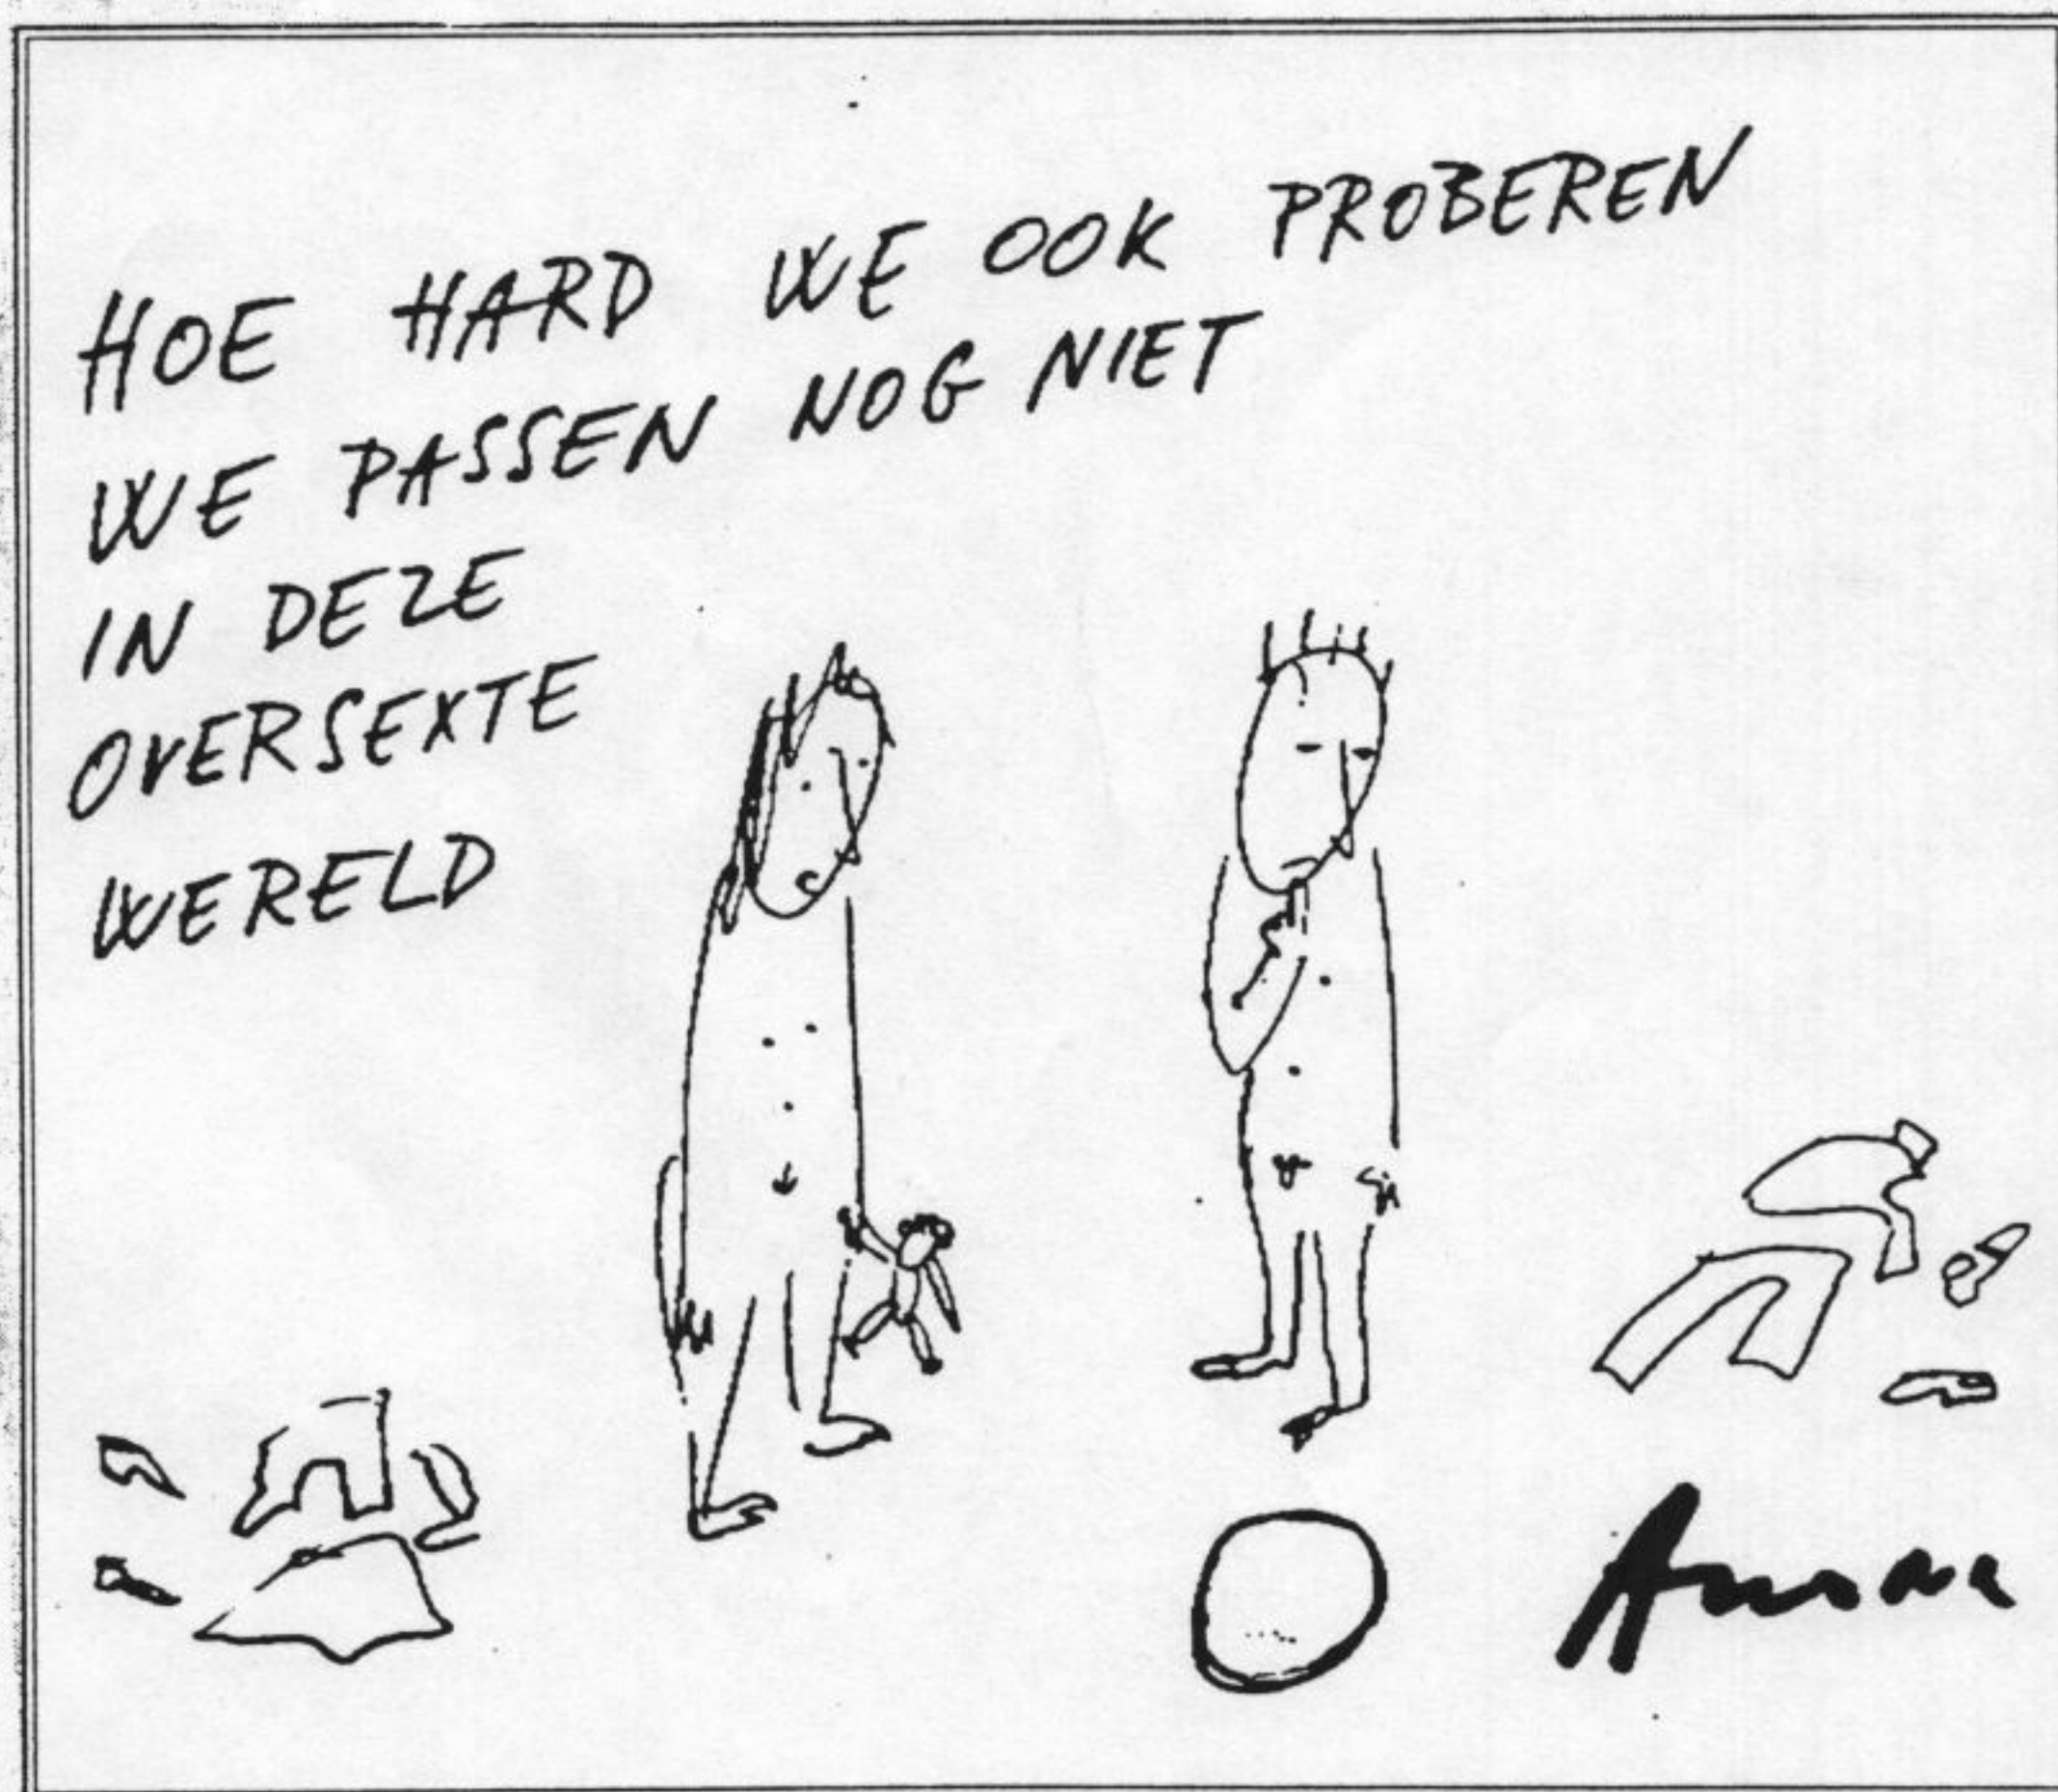 HOE HARD WE OOK PROBEREN
WE PASSEN NOG NIET
IN DEZE
OVERSEXTE
WERELD